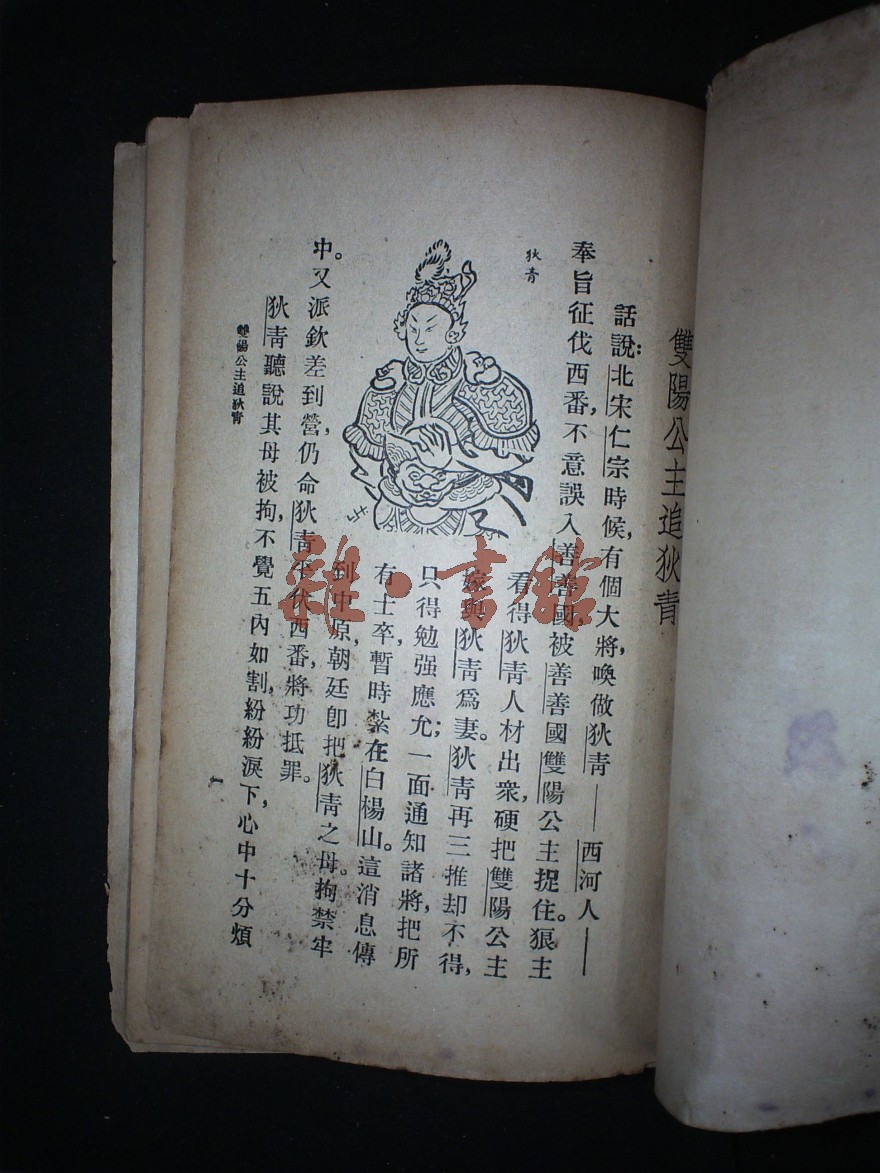 雙陽公主追狄青
話說：北宋仁宗時候，有個大將，喚做狄青——西河人——
奉旨征伐西番，不意誤入善善國，被善善國雙陽公主捉住。狼主
狄青
看得狄青人材出衆，硬把雙陽公主
嫁與狄青爲妻。狄青再三推却不得，
只得勉强應允；一面通知諸將，把所
有士卒，暫時紮在白楊山。這消息傳
到中原，朝廷卽把狄青之母，拘禁牢
中。又派欽差到營，仍命狄青平伏西番，將功抵罪。
狄青聽說其母被拘，不覺五內如割，紛紛淚下，心中十分煩
雙陽公主追狄青
一
雜·書館